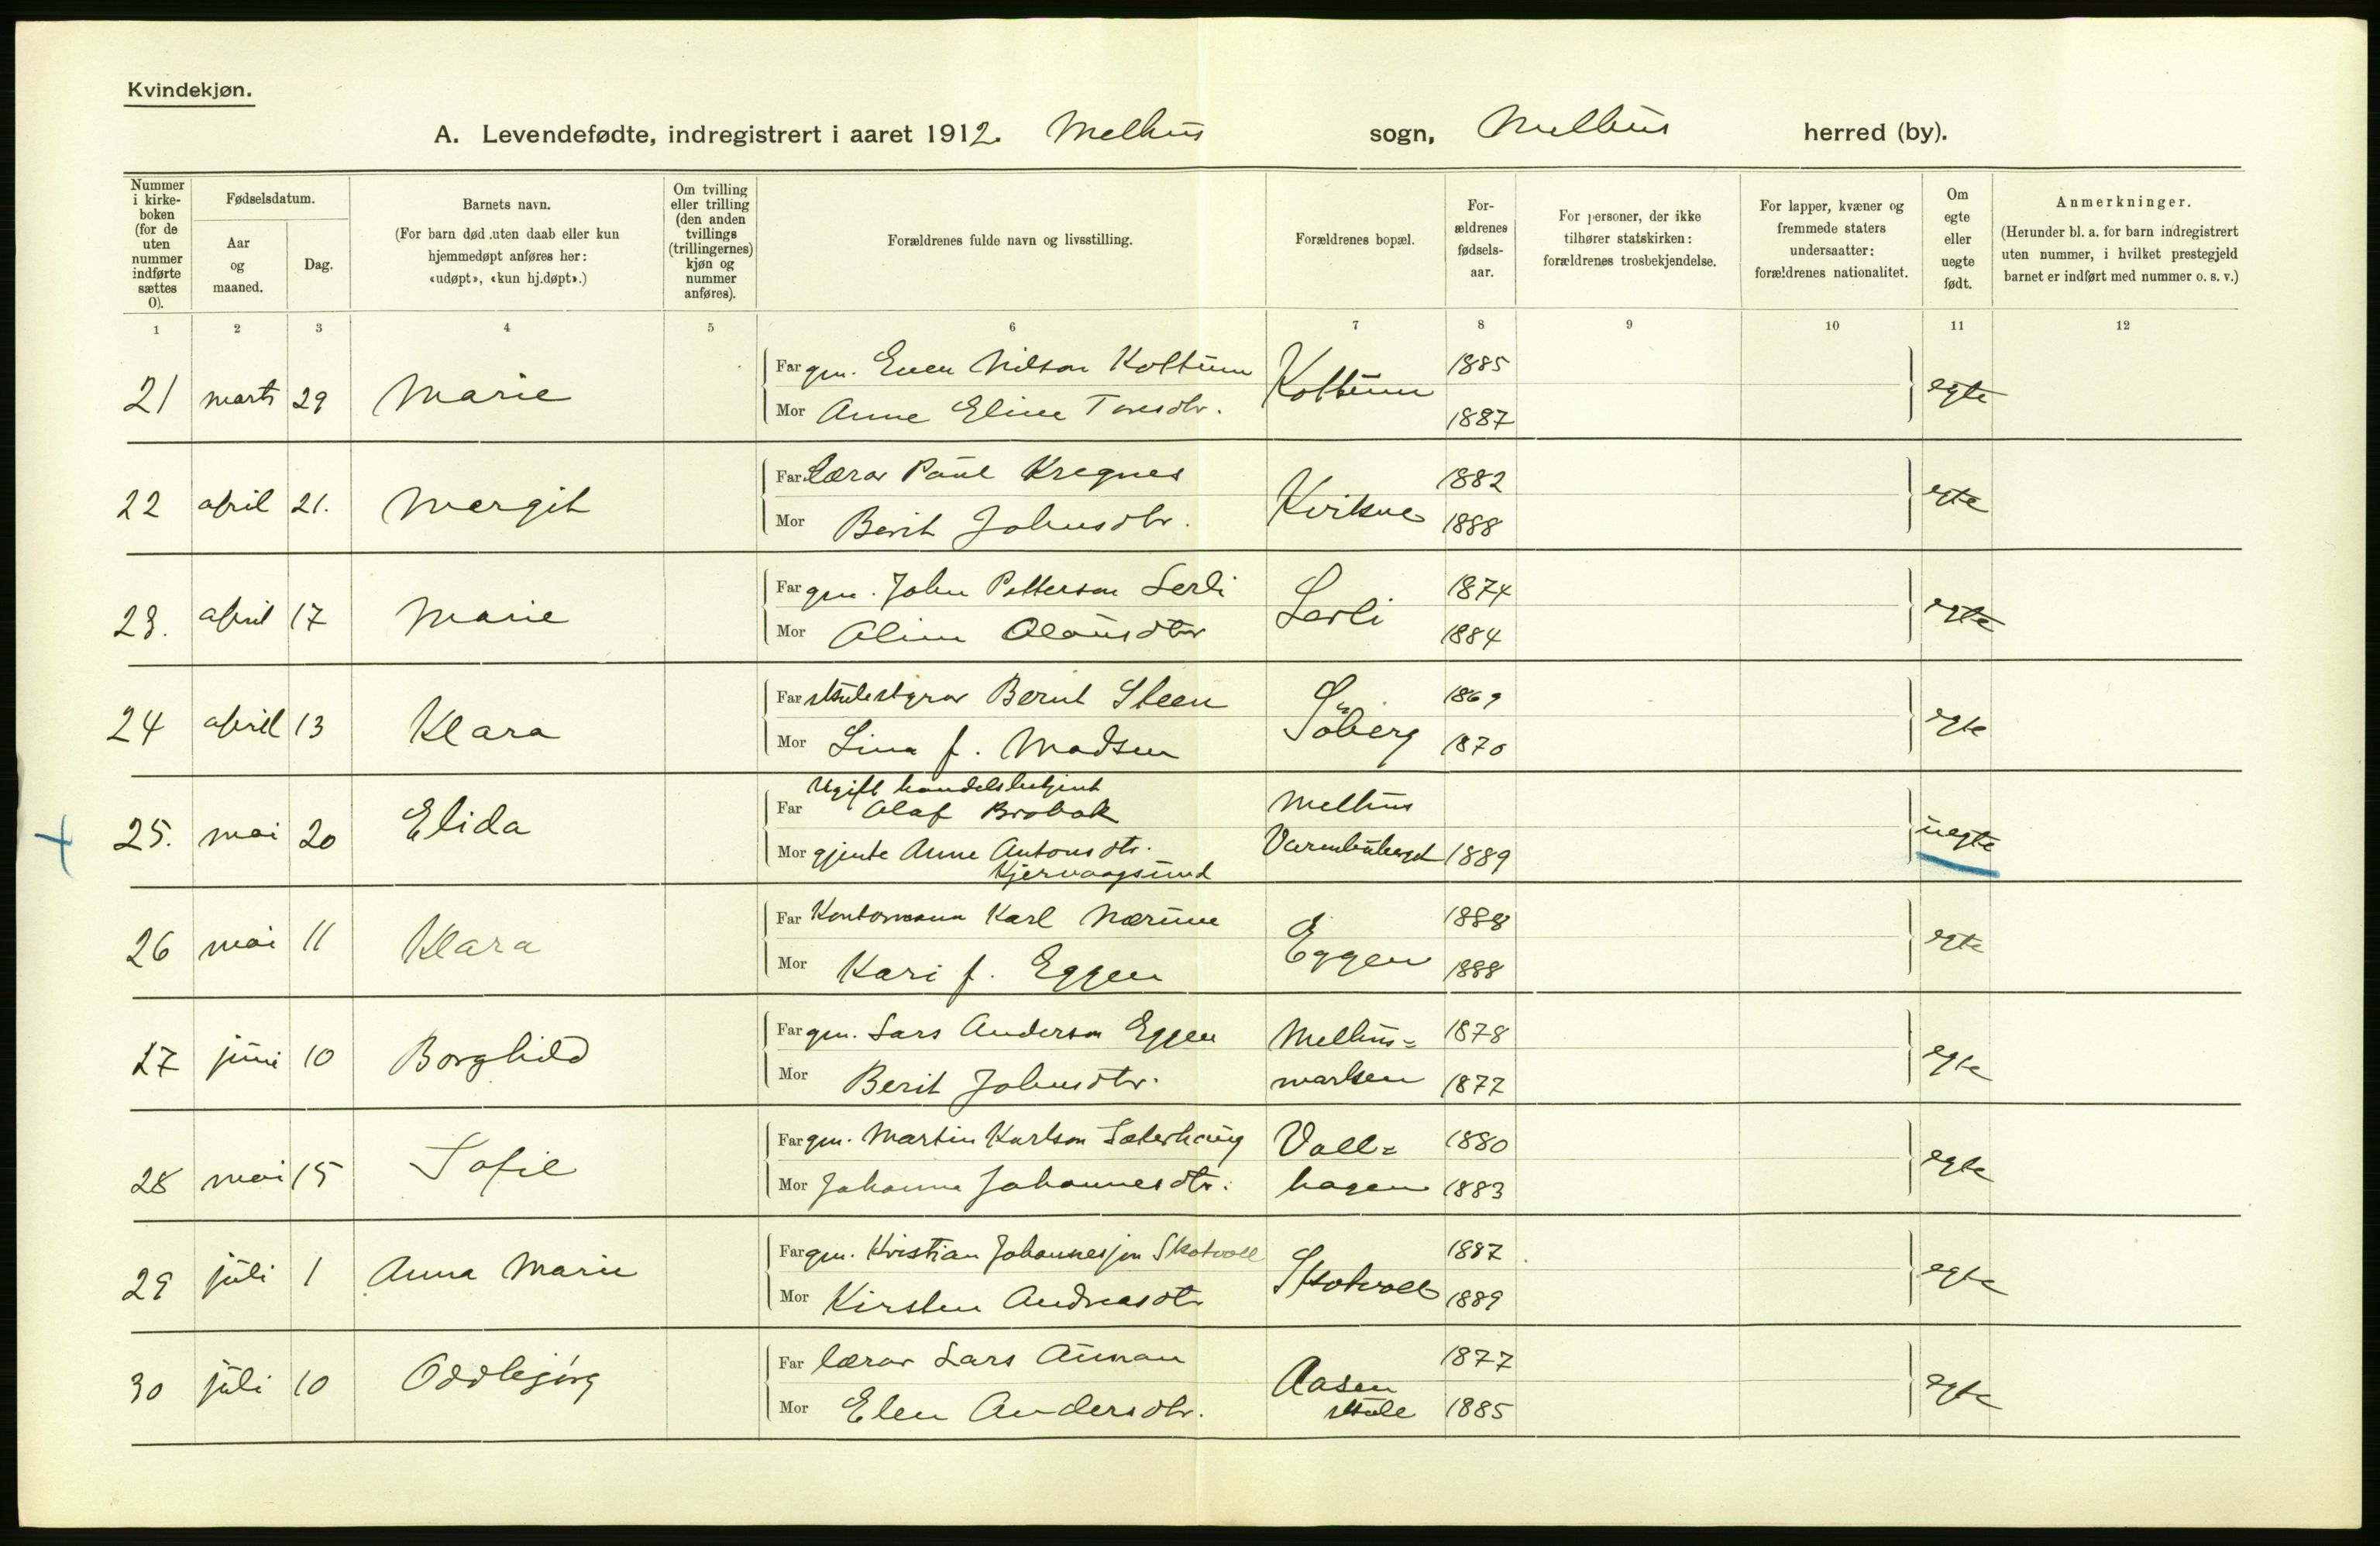 Kvindekjøn.
A. Levendefødte, indregistrert i aaret 1912. Melhus sogn, Melhus herred (by).
Nummer i kirke-boken (for de uten nummer indførte sættes 0).
Fødselsdatum.
Aar og maaned.
Dag.
Barnets navn.
(For barn død uten daab eller kun hjemmedøpt anføres her: «udøpt», «kun hj.døpt».)
Om tvilling eller trilling (den anden tvillings (trillingernes) kjøn og nummer anføres).
Forældrenes fulde navn og livsstilling.
Forældrenes bopæl.
For-ældrenes fødsels-aar.
For personer, der ikke tilhører statskirken: forældrenes trosbekjendelse.
For lapper, kvæner og fremmede staters undersaatter: forældrenes nationalitet.
Om egte eller uegte født.
Anmerkninger.
(Herunder bl. a. for barn indregistrert uten nummer, i hvilket prestegjeld barnet er indført med nummer o. s. v.)
1 2 3 4 5 6 7 8 9 10 11 12
Far gm. Even Nilsen Kolbrun 1885
21 marts 29 Marie egte
Mor Anne Eline 1887
Far lærer Paul Kregnes 1882
22 april 21. Margit Kvikne egte
Mor Berit Johnsdtr. 1888
Far gm. John Petterson Lerli 1874
23. april 17 Marie Lerli egte
Mor Oline Olausdtr 1884
Far skulestyrer Bernt Steen 1869
24 april 13 Klara Søberg egte
Mor Lina f. Madsen 1870
Ugift handelsbetjent
Far Olaf Brobak Melhus
25. mai 20 Elida uegte
Mor gjente Anne Antonsdtr. Varmbubergt 1889
Kjervaagsund
Far Kontormann Karl Nærum 1888
26 mai 11 Klara Eggen egte
Mor Kari f. Eggen 1888
Far gm. Lars Anderson Eggen Melhus= 1878
27 juni 10 Borghild egte
Mor Berit Johnsdtr. marken 1877
Far gm. Martin Karlson Sæterhaug Voll= 1880
28 mai 15 Sofie egte
Mor Johanna Johannesdtr. hagen 1883
Far gm. Kristian Johannesson Skotvoll 1887
29 juli 1 Anna Marie Skotvoll egte
Mor Kirsten Andreasdtr 1889
Far lærer Lars Aunan 1877
30 juli 10 Oddbjørg Aasen egte
Mor Elen Andersdtr. skule 1885